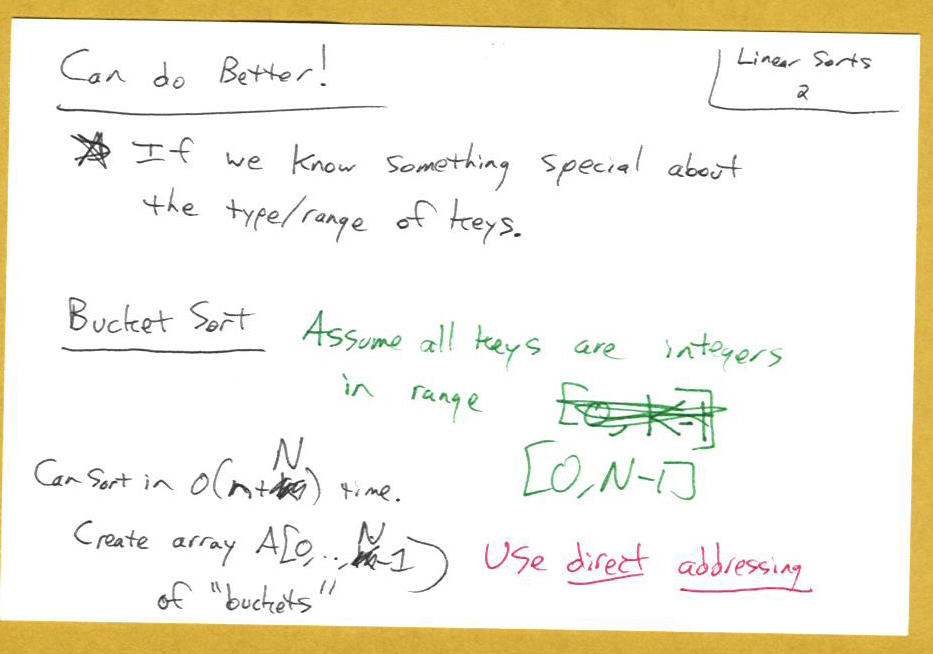 Can do Better!
Linear Sorts
2
If we know something special about
the type/range of keys.
Bucket Sort
Assume all keys are integers
in range [0, K-1]
[0, N-1]
Can Sort in O(n+N) time.
Create array A[0,..,N-1]
of "buckets"
Use direct addressing